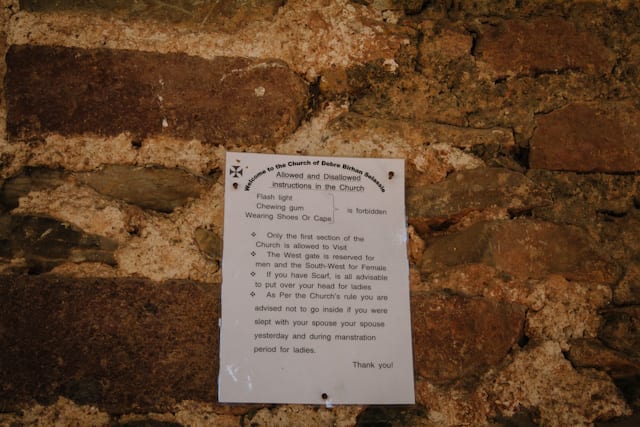 Welcome to the Church of Debre Birhan Selassie
Allowed and Disallowed
instructions in the Church
Flash light
Chewing gum
Wearing Shoes Or Cape
is forbidden
❖ Only the first section of the
Church is allowed to Visit
❖ The West gate is reserved for
men and the South-West for Female
❖ If you have Scarf, is all advisable
to put over your head for ladies
❖ As Per the Church's rule you are
advised not to go inside if you were
slept with your spouse your spouse
yesterday and during manstration
period for ladies.
Thank you!